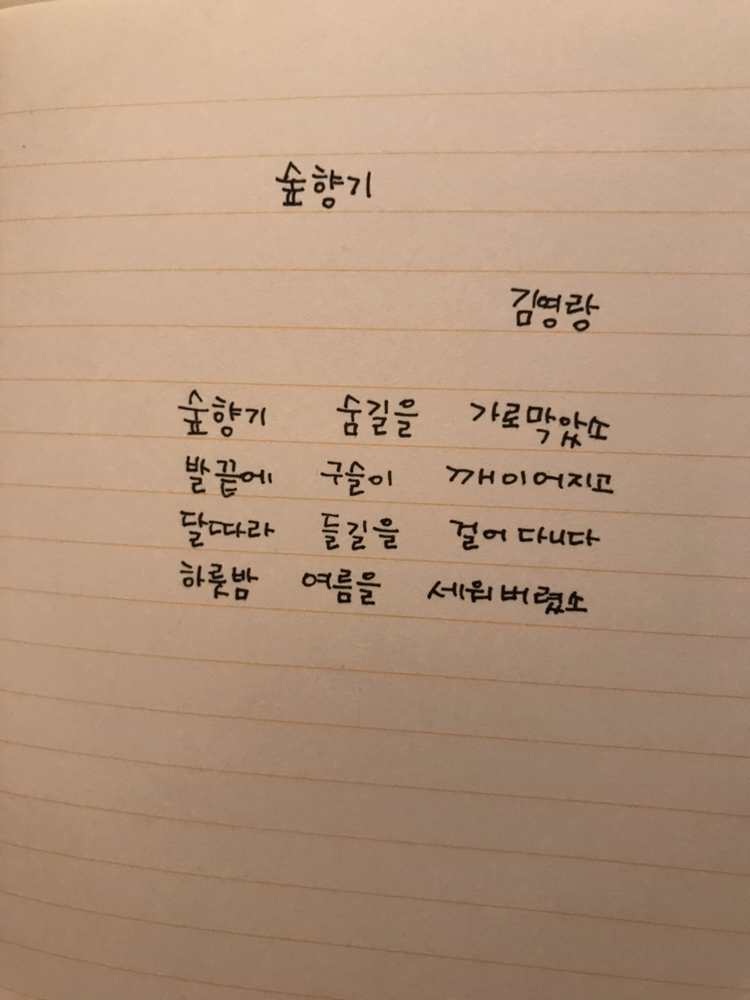 숲향기
김영랑
숲향기 숨길을 가로막았소
발끝에 구슬이 깨이어지고
달따라 들길을 걸어 다니다
하룻밤 여름을 세워버렸소